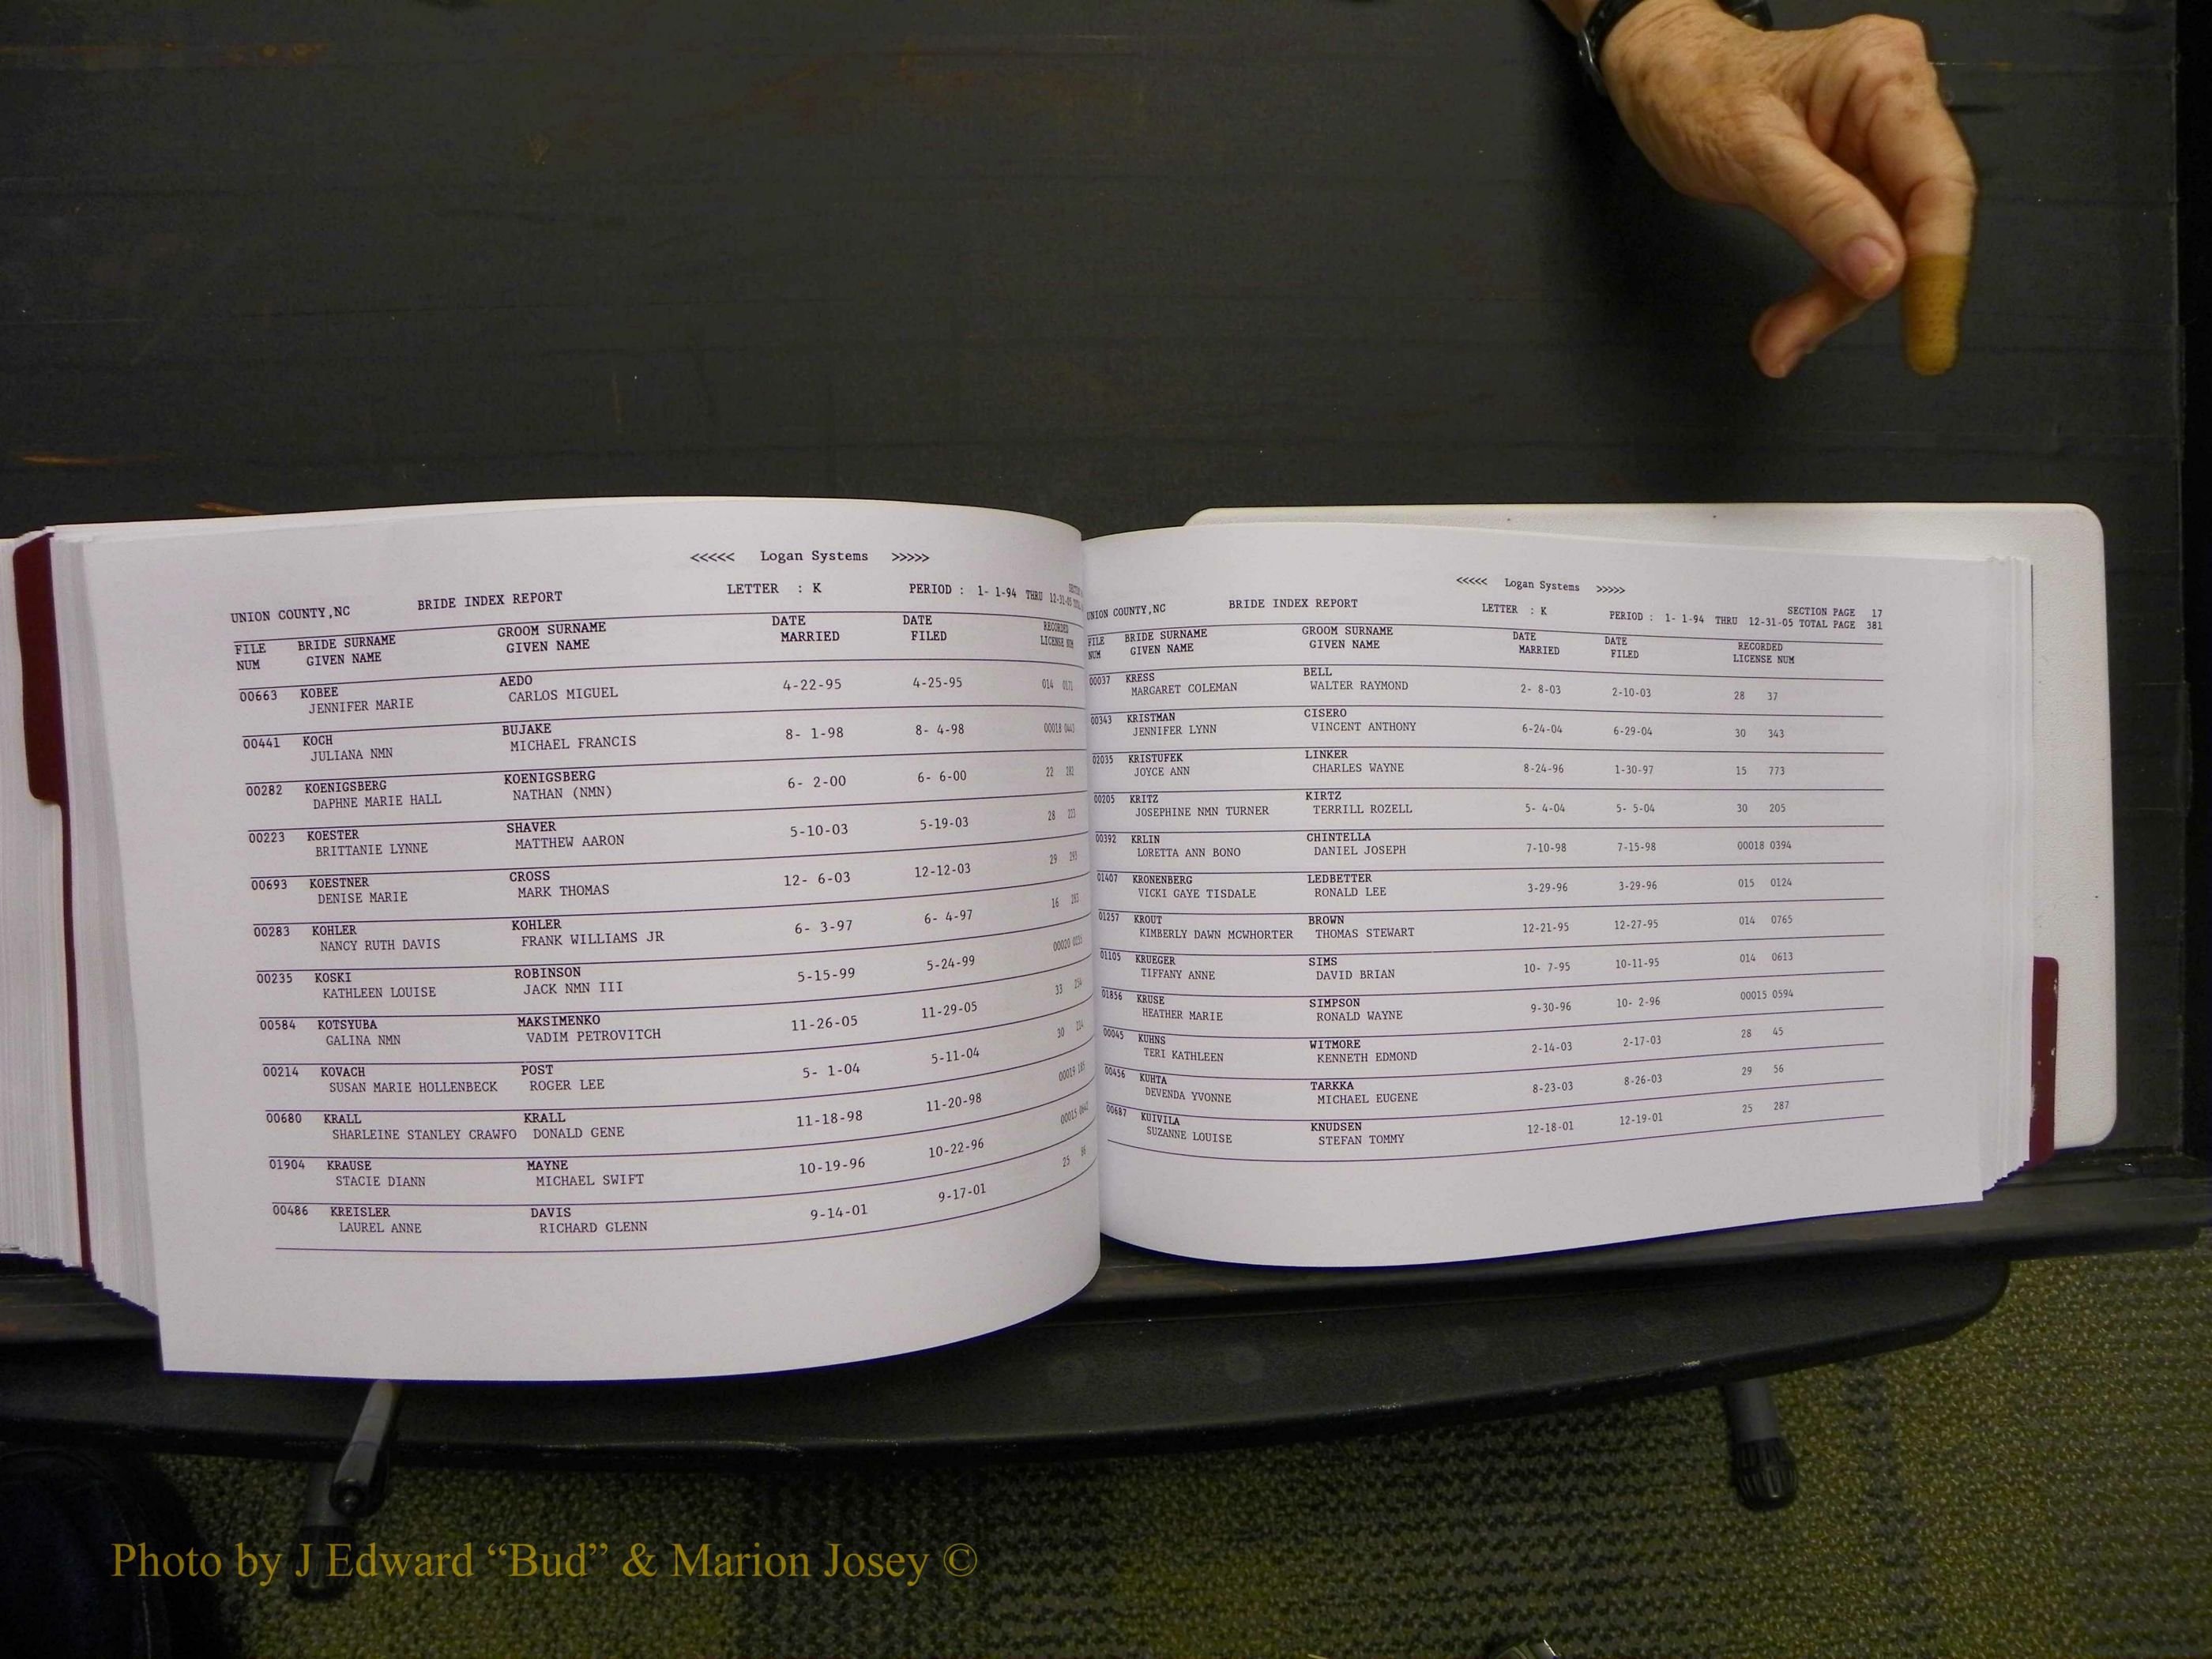 <<<<< Logan Systems >>>>>
UNION COUNTY,NC BRIDE INDEX REPORT LETTER : K PERIOD : 1- 1-94 THRU 12-31-05
FILE BRIDE SURNAME GROOM SURNAME DATE DATE RECORDED
NUM GIVEN NAME GIVEN NAME MARRIED FILED LICENSE NUM
00663 KOBEE AEDO 4-22-95 4-25-95 014
JENNIFER MARIE CARLOS MIGUEL
00441 KOCH BUJAKE 8- 1-98 8- 4-98 00018
JULIANA NMN MICHAEL FRANCIS
00282 KOENIGSBERG KOENIGSBERG 6- 2-00 6- 6-00 22
DAPHNE MARIE HALL NATHAN (NMN)
00223 KOESTER SHAVER 5-10-03 5-19-03 28
BRITTANIE LYNNE MATTHEW AARON
00693 KOESTNER CROSS 12- 6-03 12-12-03 29
DENISE MARIE MARK THOMAS
00283 KOHLER KOHLER 6- 3-97 6- 4-97 16
NANCY RUTH DAVIS FRANK WILLIAMS JR
00235 KOSKI ROBINSON 5-15-99 5-24-99 00020
KATHLEEN LOUISE JACK NMN III
00584 KOTSYUBA MAKSIMENKO 11-26-05 11-29-05 33
GALINA NMN VADIM PETROVITCH
00214 KOVACH POST 5- 1-04 5-11-04 30
SUSAN MARIE HOLLENBECK ROGER LEE
00680 KRALL KRALL 11-18-98 11-20-98 00019
SHARLEINE STANLEY CRAWFO DONALD GENE
01904 KRAUSE MAYNE 10-19-96 10-22-96 00015
STACIE DIANN MICHAEL SWIFT
00486 KREISLER DAVIS 9-14-01 9-17-01 25
LAUREL ANNE RICHARD GLENN
<<<<< Logan Systems >>>>>
SECTION PAGE 17
UNION COUNTY,NC BRIDE INDEX REPORT LETTER : K PERIOD : 1- 1-94 THRU 12-31-05 TOTAL PAGE 381
FILE BRIDE SURNAME GROOM SURNAME DATE DATE RECORDED
NUM GIVEN NAME GIVEN NAME MARRIED FILED LICENSE NUM
00037 KRESS BELL 2- 8-03 2-10-03 28 37
MARGARET COLEMAN WALTER RAYMOND
00343 KRISTMAN CISERO 6-24-04 6-29-04 30 343
JENNIFER LYNN VINCENT ANTHONY
02035 KRISTUFEK LINKER 8-24-96 1-30-97 15 773
JOYCE ANN CHARLES WAYNE
00205 KRITZ KIRTZ 5- 4-04 5- 5-04 30 205
JOSEPHINE NMN TURNER TERRILL ROZELL
00392 KRLIN CHINTELLA 7-10-98 7-15-98 00018 0394
LORETTA ANN BONO DANIEL JOSEPH
01407 KRONENBERG LEDBETTER 3-29-96 3-29-96 015 0124
VICKI GAYE TISDALE RONALD LEE
01257 KROUT BROWN 12-21-95 12-27-95 014 0765
KIMBERLY DAWN MCWHORTER THOMAS STEWART
01105 KRUEGER SIMS 10- 7-95 10-11-95 014 0613
TIFFANY ANNE DAVID BRIAN
01856 KRUSE SIMPSON 9-30-96 10- 2-96 00015 0594
HEATHER MARIE RONALD WAYNE
00045 KUHNS WITMORE 2-14-03 2-17-03 28 45
TERI KATHLEEN KENNETH EDMOND
00456 KUHTA TARKKA 8-23-03 8-26-03 29 56
DEVENDA YVONNE MICHAEL EUGENE
00687 KUIVILA KNUDSEN 12-18-01 12-19-01 25 287
SUZANNE LOUISE STEFAN TOMMY
Photo by J Edward “Bud” & Marion Josey ©